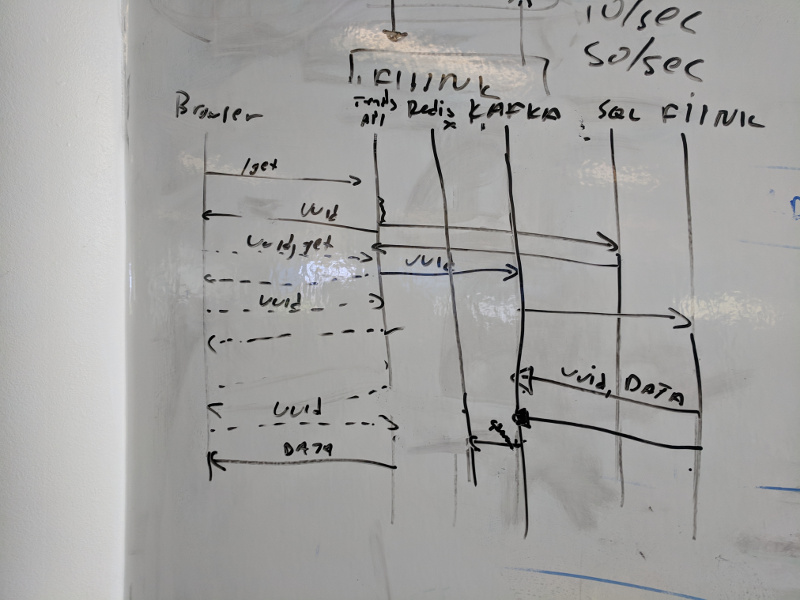 10/sec
50/sec
FIINK
Browser
Trends API
Redis
KAFKA
SQL
FIINK
/get
uuid
uuid, get
uuid
uuid
uuid, DATA
uuid
DATA